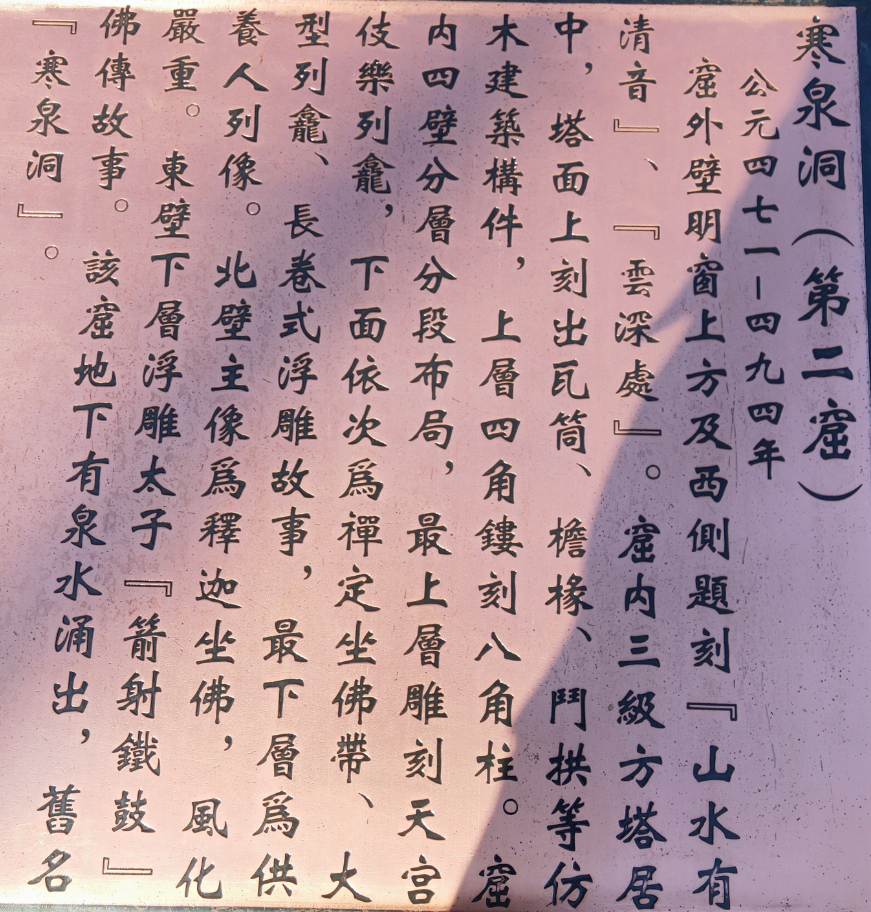 寒泉洞（第二窟）
公元四七一–四九四年
窟外壁明窗上方及西側題刻『山水有
清音』、『雲深處』。窟内三級方塔居
中，塔面上刻出瓦筒、檐椽、鬥拱等仿
木建築構件，上層四角鏤刻八角柱。窟
内四壁分層分段布局，最上層雕刻天宮
伎樂列龕，下面依次爲禪定坐佛帶、大
型列龕、長卷式浮雕故事，最下層爲供
養人列像。北壁主像爲釋迦坐佛，風化
嚴重。東壁下層浮雕太子『箭射鐵鼓』
佛傳故事。該窟地下有泉水涌出，舊名
『寒泉洞』。